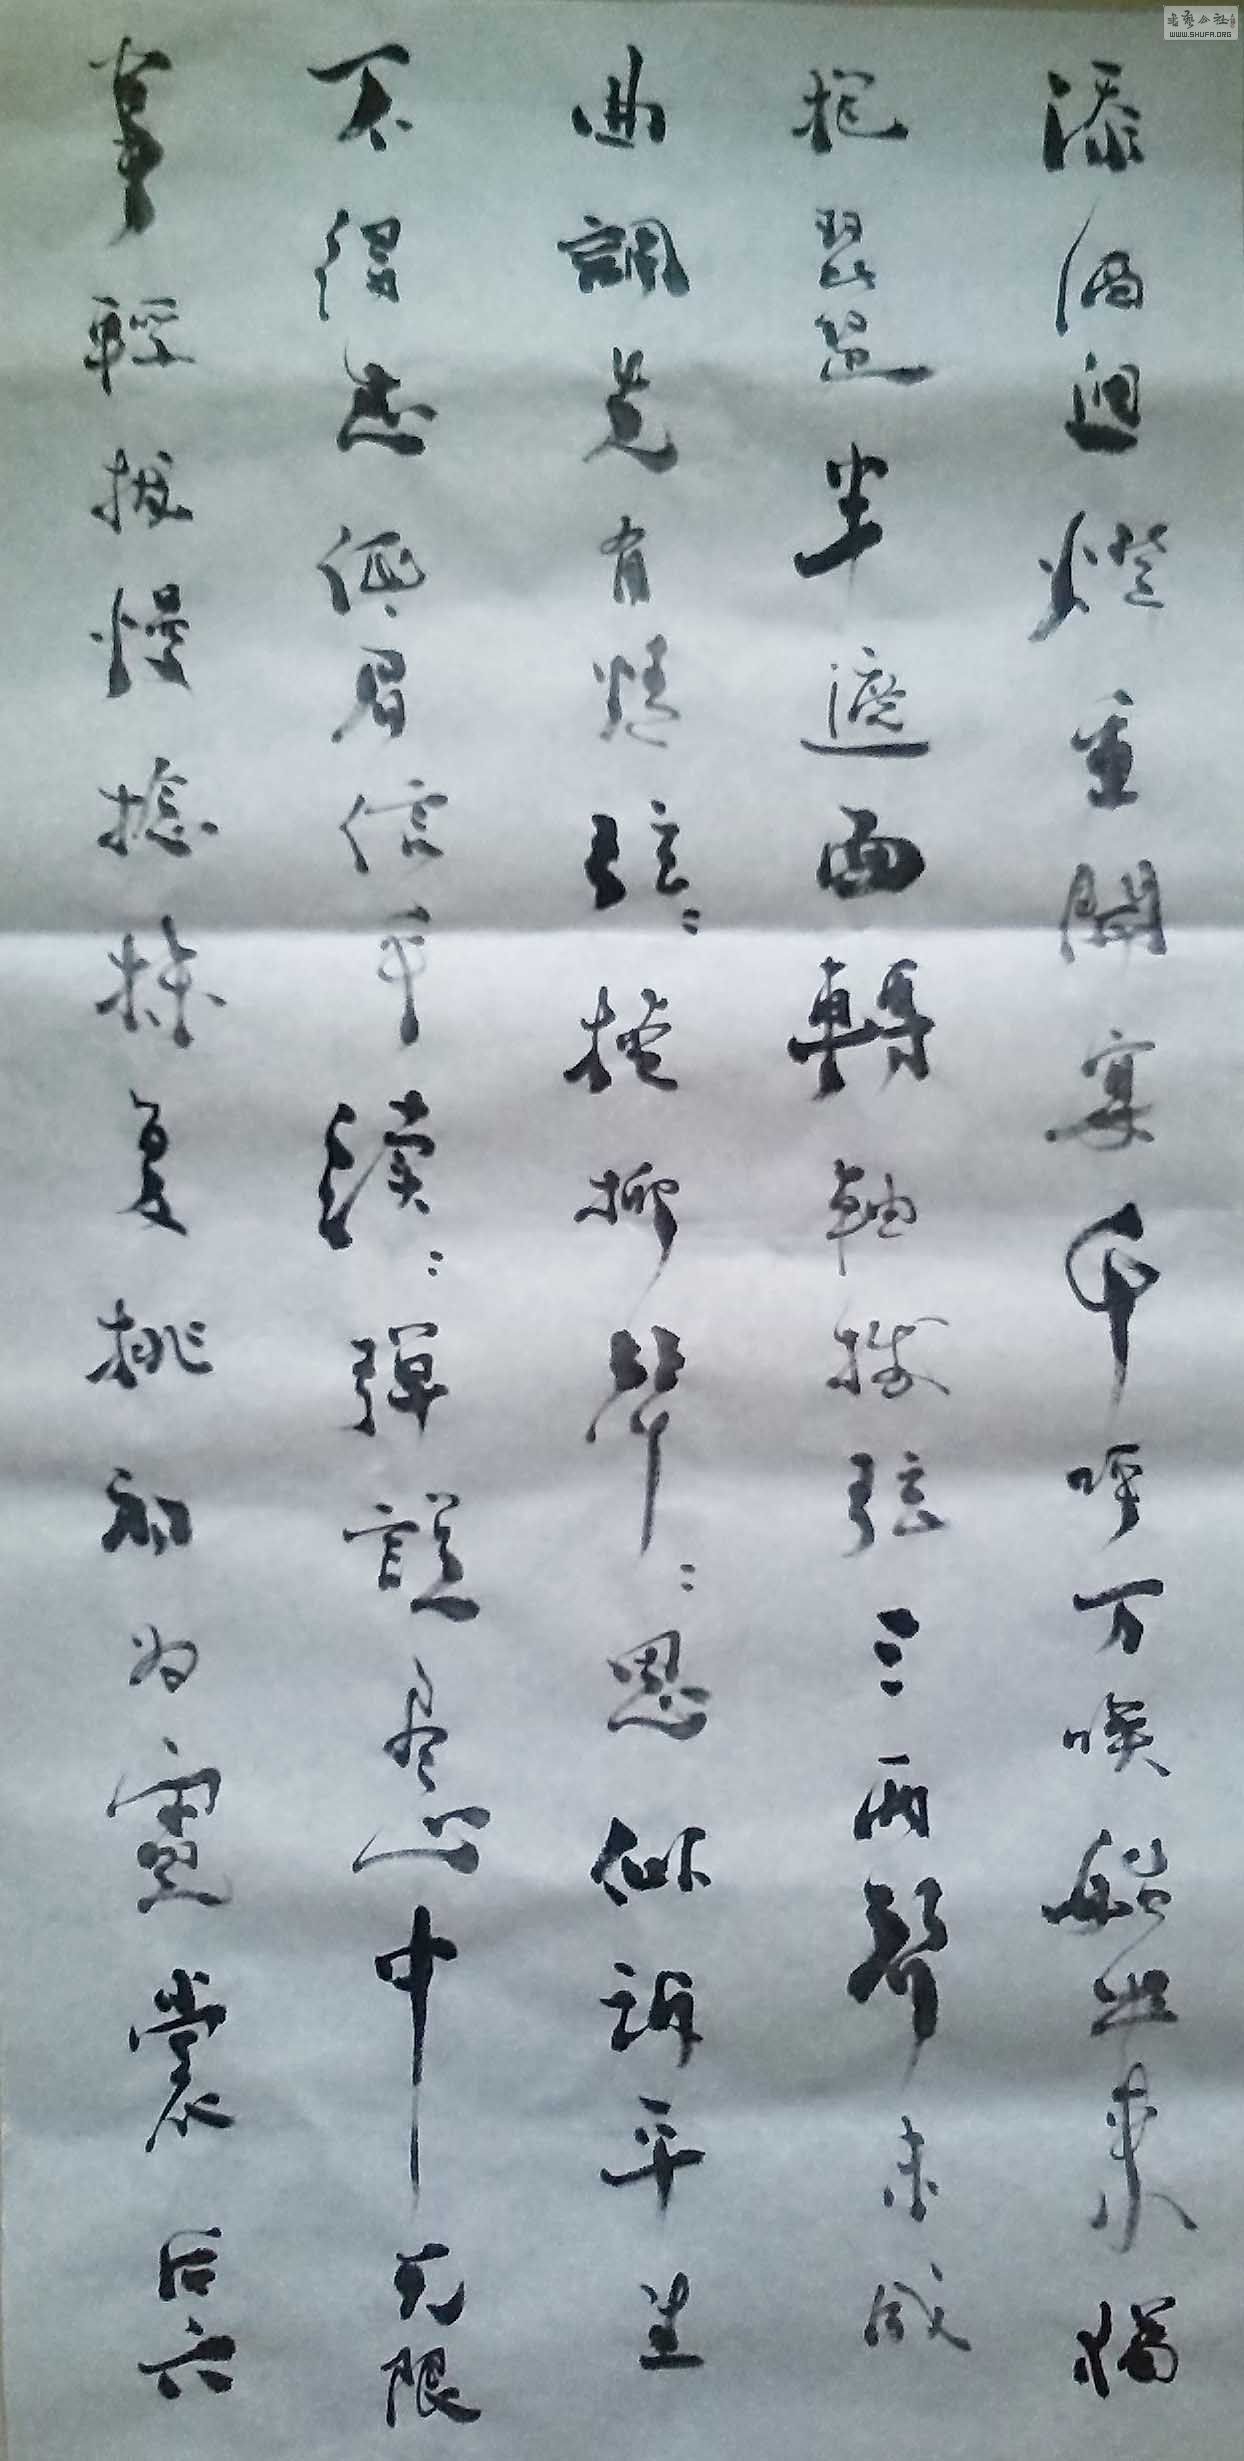 添酒迴燈重開宴千呼万喚始出來猶
抱琵琶半遮面轉軸撥弦三兩聲未成
曲調覺有情弦〻掩抑聲〻思似訴平生
不得志低眉信手續〻彈說盡心中无限
事輕拔慢捻抹复挑初为霓裳后六
书艺公社
WWW.SHUFA.ORG